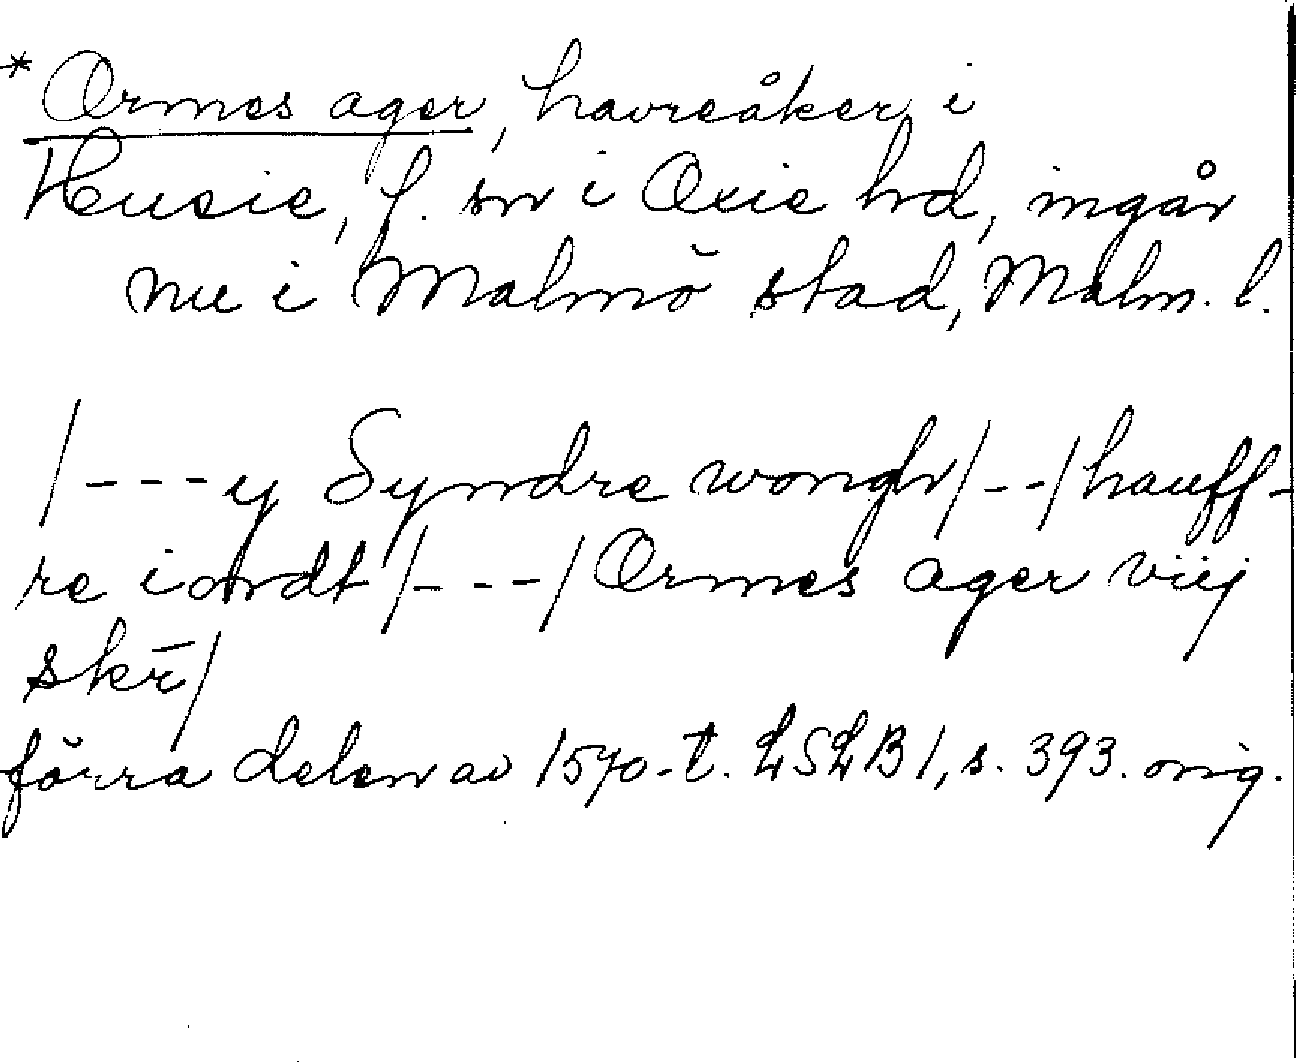 * Ormes ager, havreåker i
Husie, f. sn i Oxie hd, ingår
nu i Malmö stad, Malm. l.
/---y Syndre wongh/--/hauff-
re iordt/---/Ormes ager viij
skr̄/
förra delen av 1570-t. LSLB1, s. 393. orig.